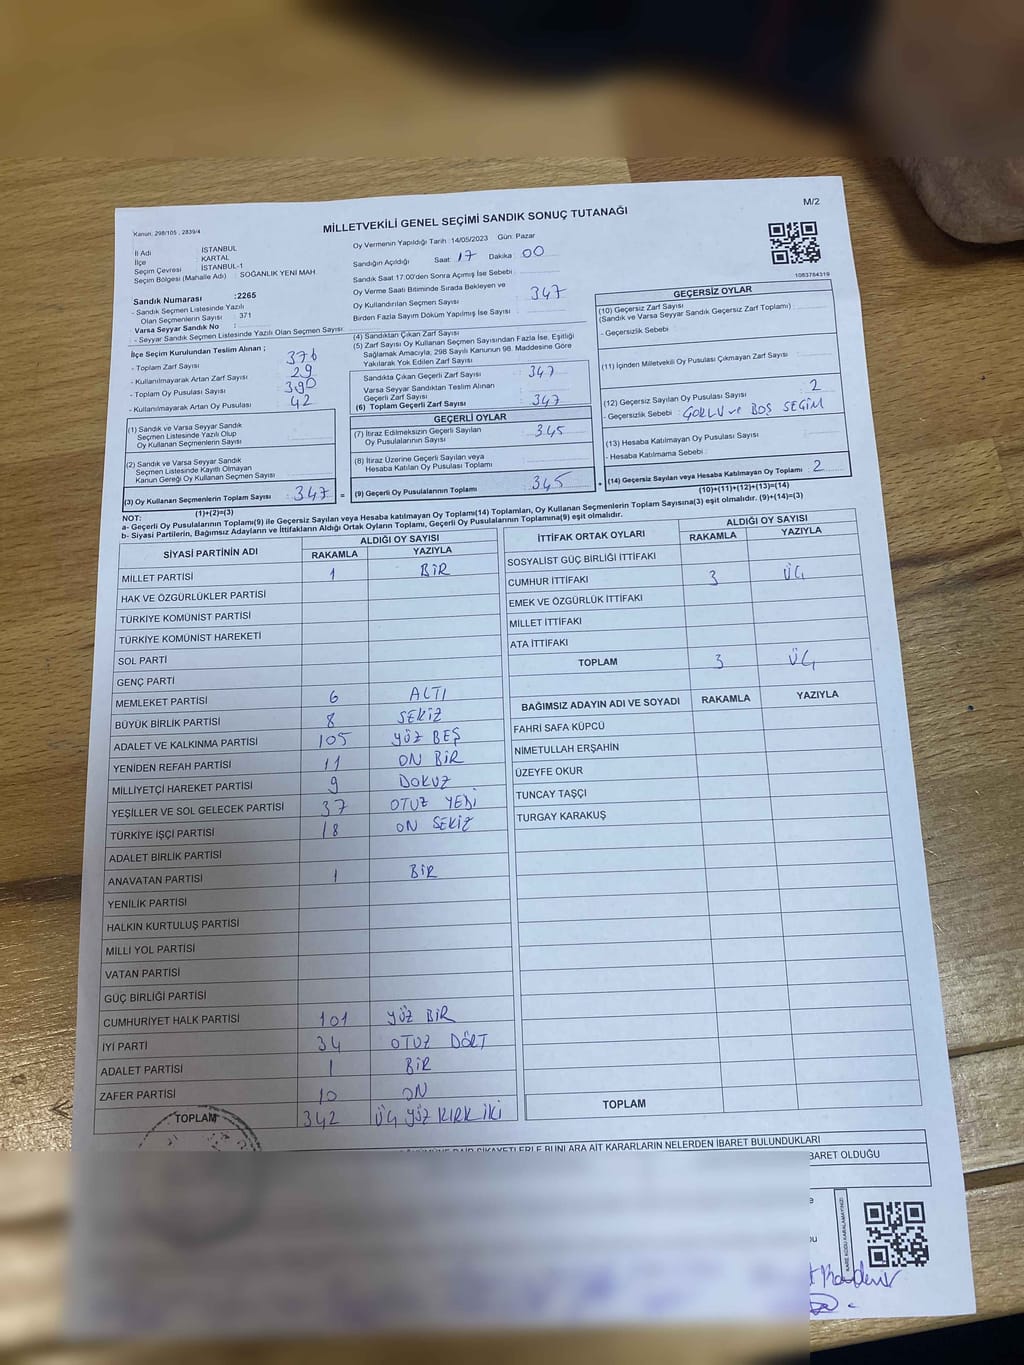 M/2
Kanun: 298/105 , 2839/4
MİLLETVEKİLİ GENEL SEÇİMİ SANDIK SONUÇ TUTANAĞI
İl Adı : İSTANBUL
İlçe : KARTAL
Seçim Çevresi : İSTANBUL-1
Seçim Bölgesi (Mahalle Adı) : SOĞANLIK YENİ MAH.
Sandık Numarası :2265
- Sandık Seçmen Listesinde Yazılı
Olan Seçmenlerin Sayısı : 371
Varsa Seyyar Sandık No :
- Seyyar Sandık Seçmen Listesinde Yazılı Olan Seçmen Sayısı:
İlçe Seçim Kurulundan Teslim Alınan ;
- Toplam Zarf Sayısı 376
- Kullanılmayarak Artan Zarf Sayısı 29
- Toplam Oy Pusulası Sayısı 390
- Kullanılmayarak Artan Oy Pusulası 42
(1) Sandık ve Varsa Seyyar Sandık
Seçmen Listesinde Yazılı Olup
Oy Kullanan Seçmenlerin Sayısı
(2) Sandık ve Varsa Seyyar Sandık
Seçmen Listesinde Kayıtlı Olmayan
Kanun Gereği Oy Kullanan Seçmen Sayısı
(3) Oy Kullanan Seçmenlerin Toplam Sayısı 347 =
(1)+(2)=(3)
Oy Vermenin Yapıldığı Tarih : 14/05/2023 Gün: Pazar
Sandığın Açıldığı Saat: 17 Dakika 00
Sandık Saat 17:00'den Sonra Açılmış İse Sebebi :
Oy Verme Saati Bitiminde Sırada Bekleyen ve
Oy Kullandırılan Seçmen Sayısı : 347
Birden Fazla Sayım Döküm Yapılmış İse Sayısı :
(4) Sandıktan Çıkan Zarf Sayısı
(5) Zarf Sayısı Oy Kullanan Seçmen Sayısından Fazla İse, Eşitliği
Sağlamak Amacıyla, 298 Sayılı Kanunun 98. Maddesine Göre
Yakılarak Yok Edilen Zarf Sayısı
Sandıkta Çıkan Geçerli Zarf Sayısı 347
Varsa Seyyar Sandıktan Teslim Alınan
Geçerli Zarf Sayısı
(6) Toplam Geçerli Zarf Sayısı 347
GEÇERLİ OYLAR
(7) İtiraz Edilmeksizin Geçerli Sayılan
Oy Pusulalarının Sayısı 345
(8) İtiraz Üzerine Geçerli Sayılan veya
Hesaba Katılan Oy Pusulası Toplamı
(9) Geçerli Oy Pusulalarının Toplamı 345 +
1083784319
GEÇERSİZ OYLAR
(10) Geçersiz Zarf Sayısı
(Sandık ve Varsa Seyyar Sandık Geçersiz Zarf Toplamı) :
- Geçersizlik Sebebi :
(11) İçinden Milletvekili Oy Pusulası Çıkmayan Zarf Sayısı
(12) Geçersiz Sayılan Oy Pusulası Sayısı 2
- Geçersizlik Sebebi : ÇOKLU ve BOŞ SEÇİM
(13) Hesaba Katılmayan Oy Pusulası Sayısı
- Hesaba Katılmama Sebebi :
(14) Geçersiz Sayılan veya Hesaba Katılmayan Oy Toplamı 2
(10)+(11)+(12)+(13)=(14)
NOT:
a- Geçerli Oy Pusulalarının Toplamı(9) ile Geçersiz Sayılan veya Hesaba Katılmayan Oy Toplamı(14) Toplamları, Oy Kullanan Seçmenlerin Toplam Sayısına(3) eşit olmalıdır. (9)+(14)=(3)
b- Siyasi Partilerin, Bağımsız Adayların ve İttifakların Aldığı Ortak Oyların Toplamı, Geçerli Oy Pusulalarının Toplamına(9) eşit olmalıdır.
SİYASİ PARTİNİN ADI ALDIĞI OY SAYISI
RAKAMLA YAZIYLA
MİLLET PARTİSİ 1 BİR
HAK VE ÖZGÜRLÜKLER PARTİSİ
TÜRKİYE KOMÜNİST PARTİSİ
TÜRKİYE KOMÜNİST HAREKETİ
SOL PARTİ
GENÇ PARTİ
MEMLEKET PARTİSİ 6 ALTI
BÜYÜK BİRLİK PARTİSİ 8 SEKİZ
ADALET VE KALKINMA PARTİSİ 105 YÜZ BEŞ
YENİDEN REFAH PARTİSİ 11 ON BİR
MİLLİYETÇİ HAREKET PARTİSİ 9 DOKUZ
YEŞİLLER VE SOL GELECEK PARTİSİ 37 OTUZ YEDİ
TÜRKİYE İŞÇİ PARTİSİ 18 ON SEKİZ
ADALET BİRLİK PARTİSİ
ANAVATAN PARTİSİ 1 BİR
YENİLİK PARTİSİ
HALKIN KURTULUŞ PARTİSİ
MİLLİ YOL PARTİSİ
VATAN PARTİSİ
GÜÇ BİRLİĞİ PARTİSİ
CUMHURİYET HALK PARTİSİ 101 YÜZ BİR
İYİ PARTİ 34 OTUZ DÖRT
ADALET PARTİSİ 1 BİR
ZAFER PARTİSİ 10 ON
TOPLAM 342 ÜÇ YÜZ KIRK İKİ
İTTİFAK ORTAK OYLARI ALDIĞI OY SAYISI
RAKAMLA YAZIYLA
SOSYALİST GÜÇ BİRLİĞİ İTTİFAKI
CUMHUR İTTİFAKI 3 ÜÇ
EMEK VE ÖZGÜRLÜK İTTİFAKI
MİLLET İTTİFAKI
ATA İTTİFAKI
TOPLAM 3 ÜÇ
BAĞIMSIZ ADAYIN ADI VE SOYADI RAKAMLA YAZIYLA
FAHRİ SAFA KÜPCÜ
NİMETULLAH ERŞAHİN
ÜZEYFE OKUR
TUNCAY TAŞÇI
TURGAY KARAKUŞ
TOPLAM
ŞİKAYETLERLE BUNLARA AİT KARARLARIN NELERDEN İBARET BULUNDUKLARI
BARET OLDUĞU
KARE KODU KARALAMAYINIZ!